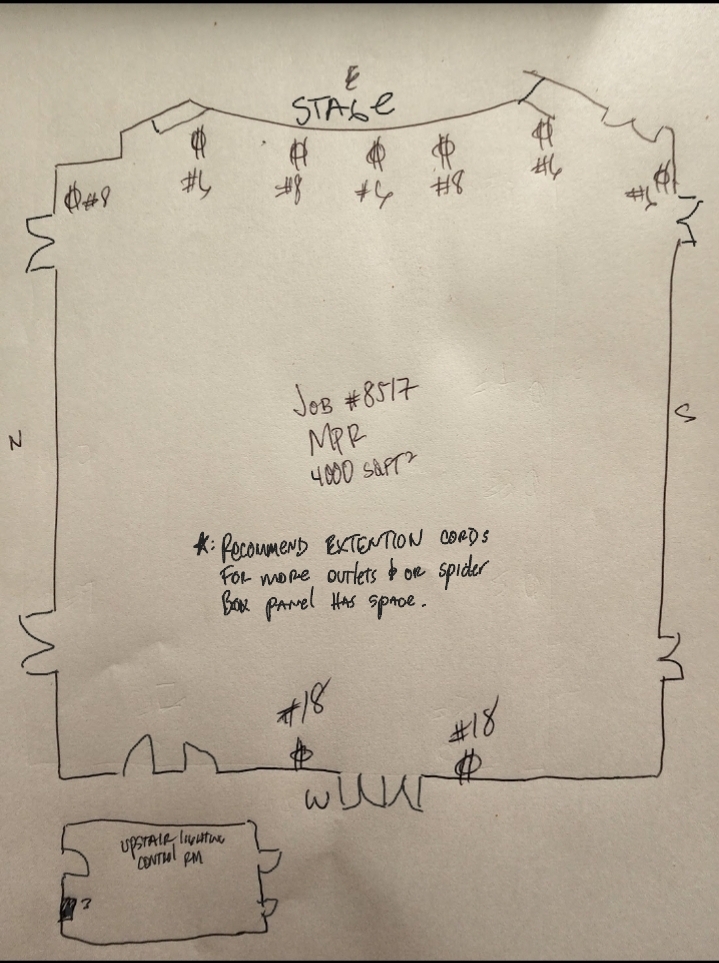 E
STAGE
#8
#6
#8
#6
#18
#6
#6
N
S
JOB #8517
MPR
4000 SQFT²
*: RECOMMEND EXTENTION CORDS
FOR MORE OUTLETS & OR SPIDER
BOX PANEL HAS SPACE.
#18
#18
W
UPSTAIR LIGHTING
CONTROL RM